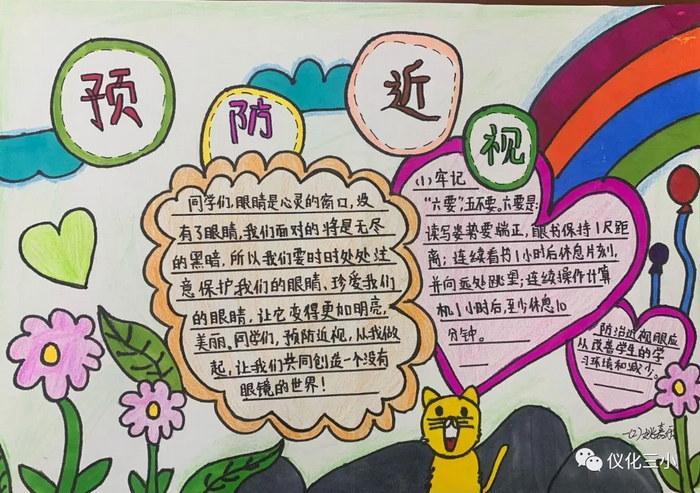 预
防
近
视
同学们,眼睛是心灵的窗口,没
有了眼睛,我们面对的将是无尽
的黑暗,所以我们要时时处处注
意保护我们的眼睛,珍爱我们
的眼睛,让它变得更加明亮,
美丽。同学们,预防近视,从我做
起,让我们共同创造一个没有
眼镜的世界!
(1)牢记
"六要","五不要。六要是:
读写姿势要端正,眼书保持1尺距
离;连续看书1小时后休息片刻,
并向远处眺望;连续操作计算
机1小时后,至少休息10
分钟。
防治近视眼应
从改善学生的学
习环境和减少。
仪化三小